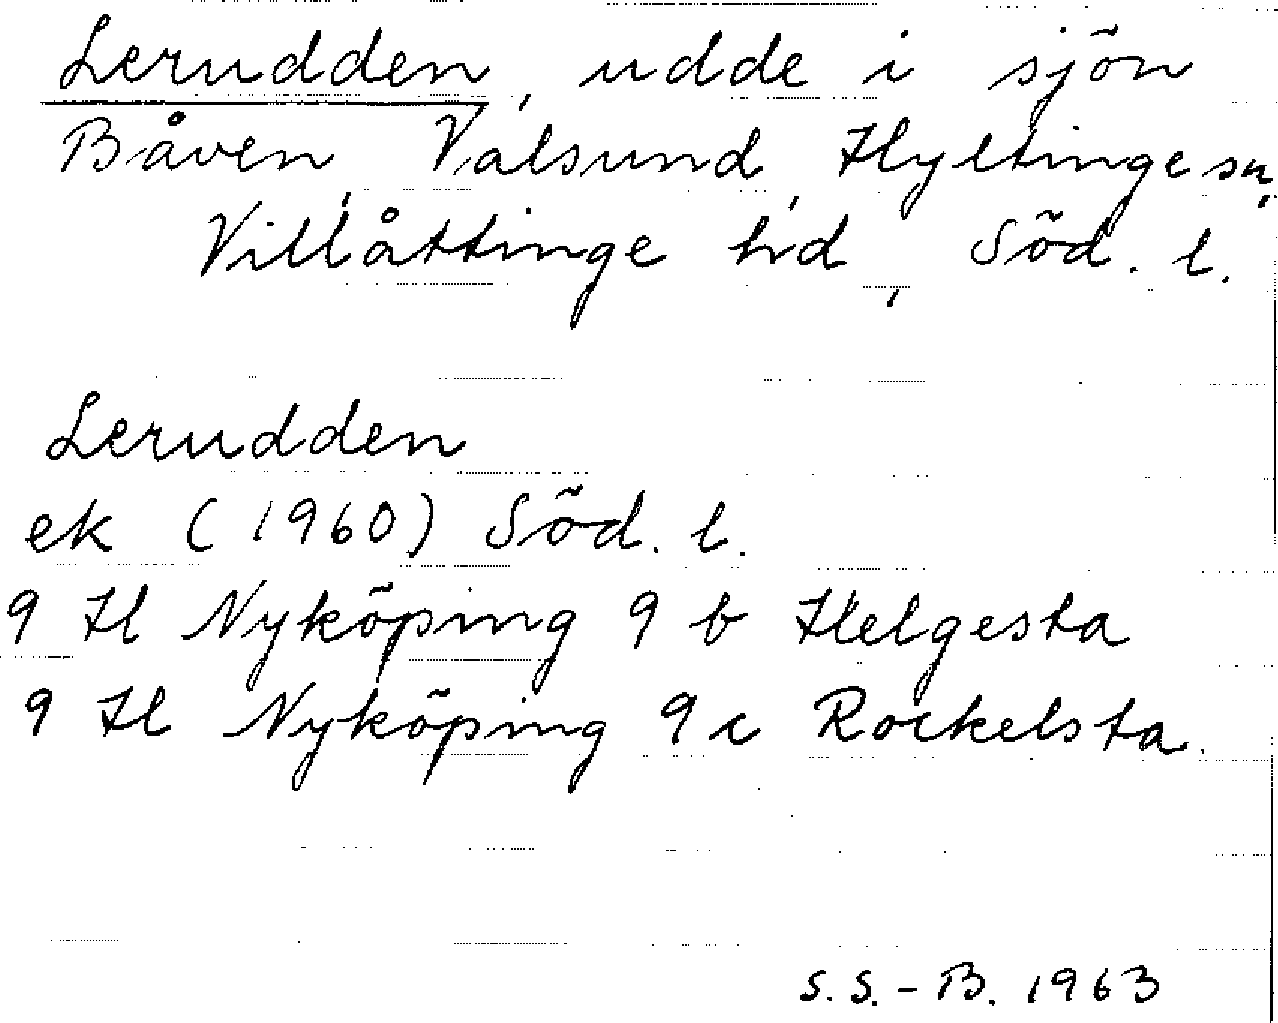 Lerudden, udde i sjön
Båven, Valsund, Hyltinge sn,
Villåttinge hd, Söd. l.
Lerudden
ek (1960) Söd. l.
9 H Nyköping 9 b Helgesta
9 H Nyköping 9 c Rockelsta.
S.S.-B. 1963